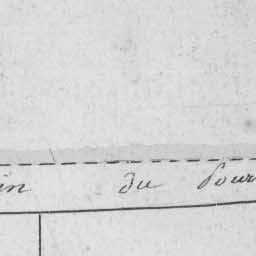 in du Pour